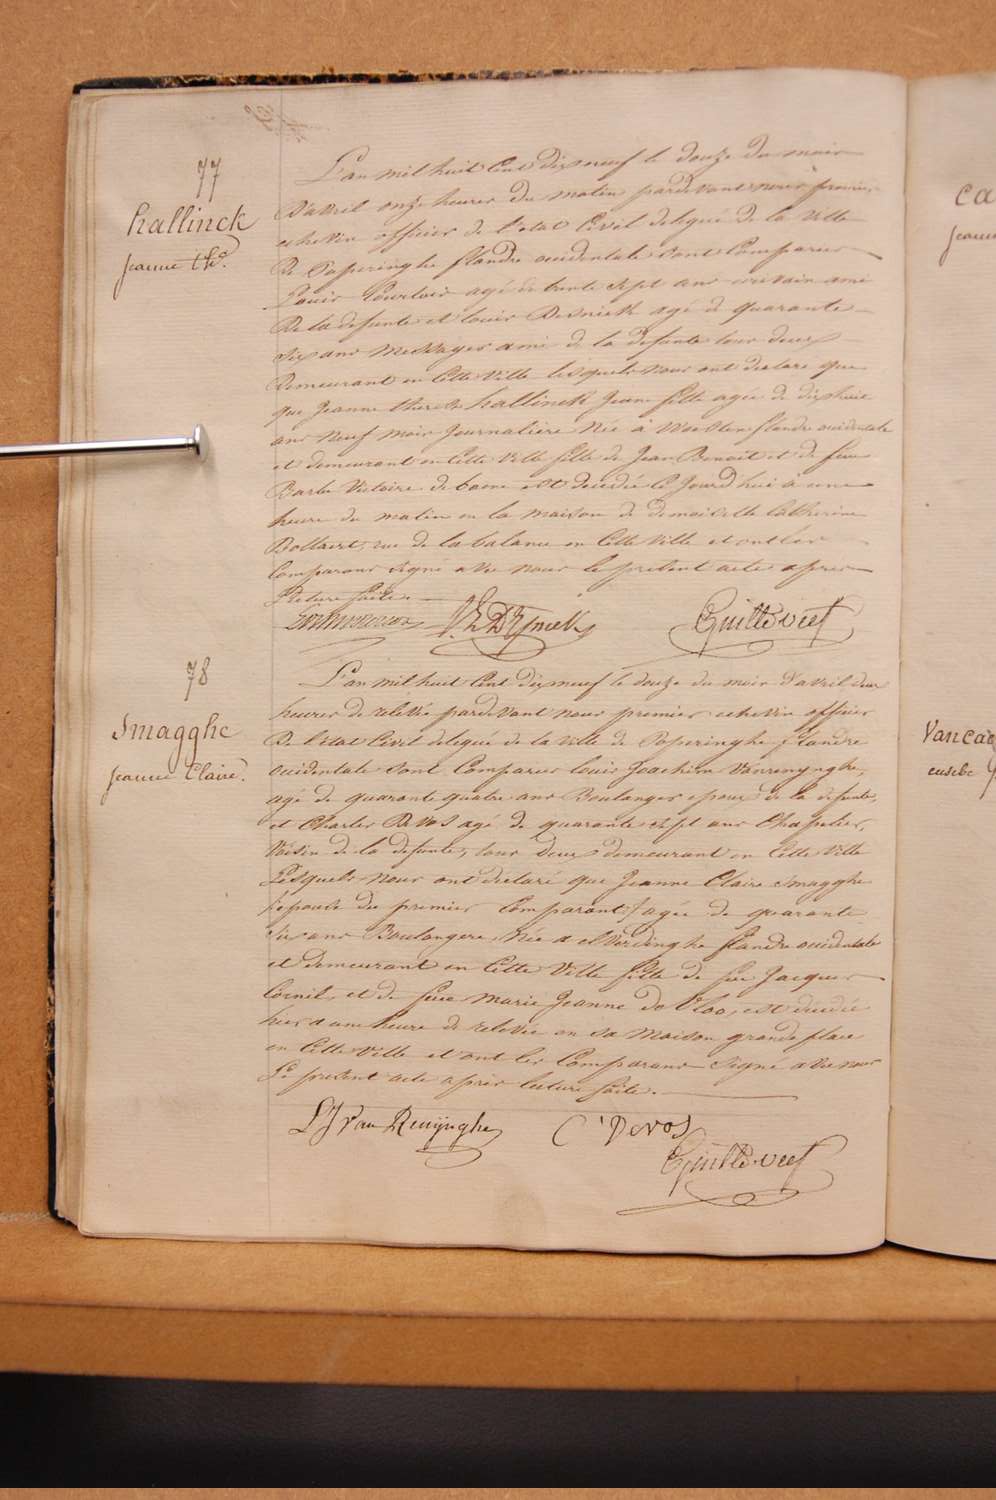 77
hallinck
jeanne thé.
L'an mil huit Cent dix neuf le douze du mois
D'avril onze heures du matin pardevant nous premier
echevin officier de l'etat Civil delegué de la Ville
De Poperinghe flandre occidentale sont Comparus
Louis agé de trente sept ans ecrivain ami
De la defunte et louis Desnick agé de quarante
six ans Messager ami de la defunte tous deux
Demeurant en Cette Ville lesquels nous ont declaré que
que Jeanne therese hallinck Jeune fille agée de dix huit
ans neuf mois Journaliere Née à Woesten flandre occidentale
et demeurant en Cette Ville fille de Jean Benoit et de feue
Barbe Victoire de baene est decedée Ce Jourd'hui à une
heure du matin en la maison de demoiselle Catherine
Bollaert, rue de la balance en Cette Ville et ont les
Comparans signé avec nous le present acte apres
lecture faite.
78
Smagghe
jeanne Claire.
L'an mil huit Cent dix neuf le douze du mois d'avril deux
heures de relevée pardevant nous premier echevin officier
De l'etat Civil delegué de la Ville de Poperinghe flandre
occidentale sont Comparus louis Joachim Vanrenynghe,
agé de quarante quatre ans Boulanger epoux de la defunte,
et Charles De Vos agé de quarante sept ans Chapelier,
Voisin de la defunte, tous deux demeurant en Cette Ville
Lesquels nous ont declaré que Jeanne Claire Smagghe
(epouse du premier Comparant) agée de quarante
six ans Boulangere, Née a elverdinghe flandre occidentale
et demeurant en Cette Ville fille de feu Jacques
Cornil, et de feue marie Jeanne de Vloo, est decedée
hier a une heure de relevée en sa Maison grande place
en Cette Ville et ont les Comparans signé avec nous
Le present acte après lecture faite.
LJ van Renynghe C Devos